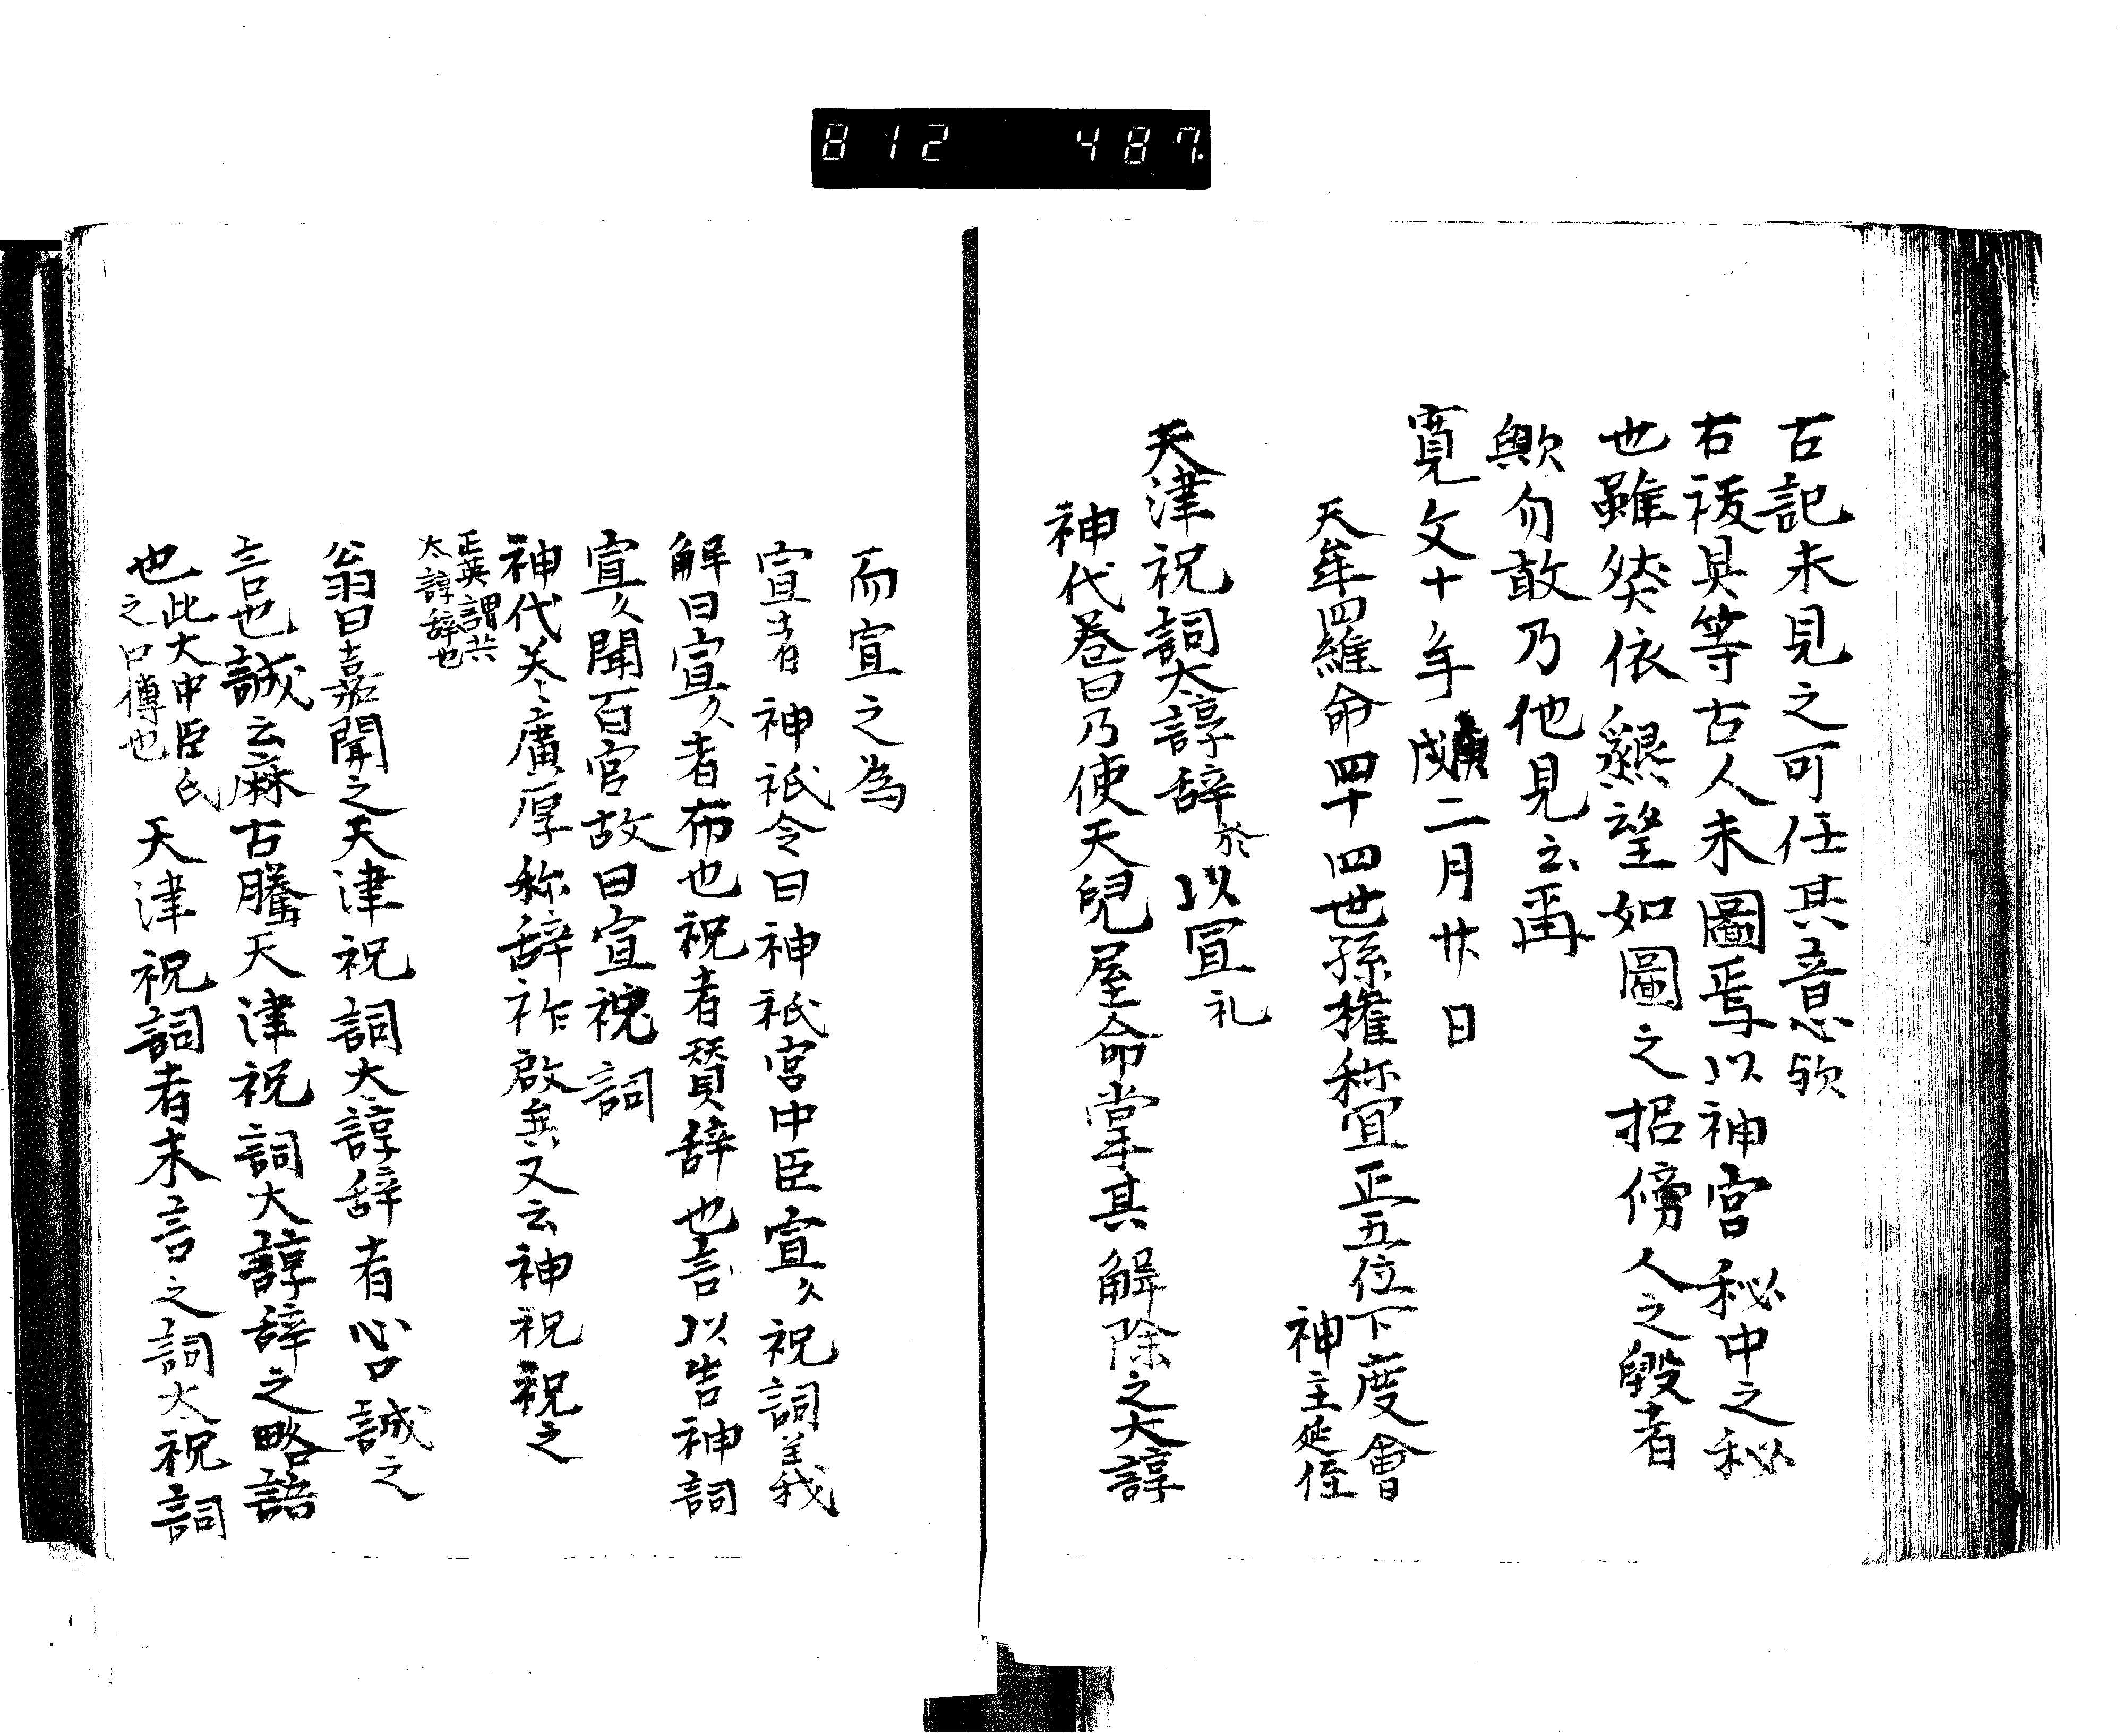 812 487
古記未見之可任其意欤
右祓具等古人未圖焉以神宮秘中之秘
也雖然依懇望如圖之招傍人之毀者
歟勿敢乃他見云再
寛文十年庚戌二月廿日
天牟羅命四十四世孫権祢宜正五位下度會
神主延佳
天津祝詞太諄辞於以宣礼
神代巻曰乃使天兒屋命掌其解除之太諄
而宣之為
宣者神祇令曰神祇官中臣宣久祝詞義
解曰宣久者布也祝者賛辞也言以告神詞
宣久聞百官故曰宣祝詞
神代巻廣厚称辞祚啟矣又云神祝祝之
正英謂共
太諄辞也
翁曰嘉聞之天津祝詞太諄辞者心口誠之
言也誠云麻古騰天津祝詞大諄辞之略語
也此大中臣氏
之口傳也
天津祝詞者未言之詞太祝詞